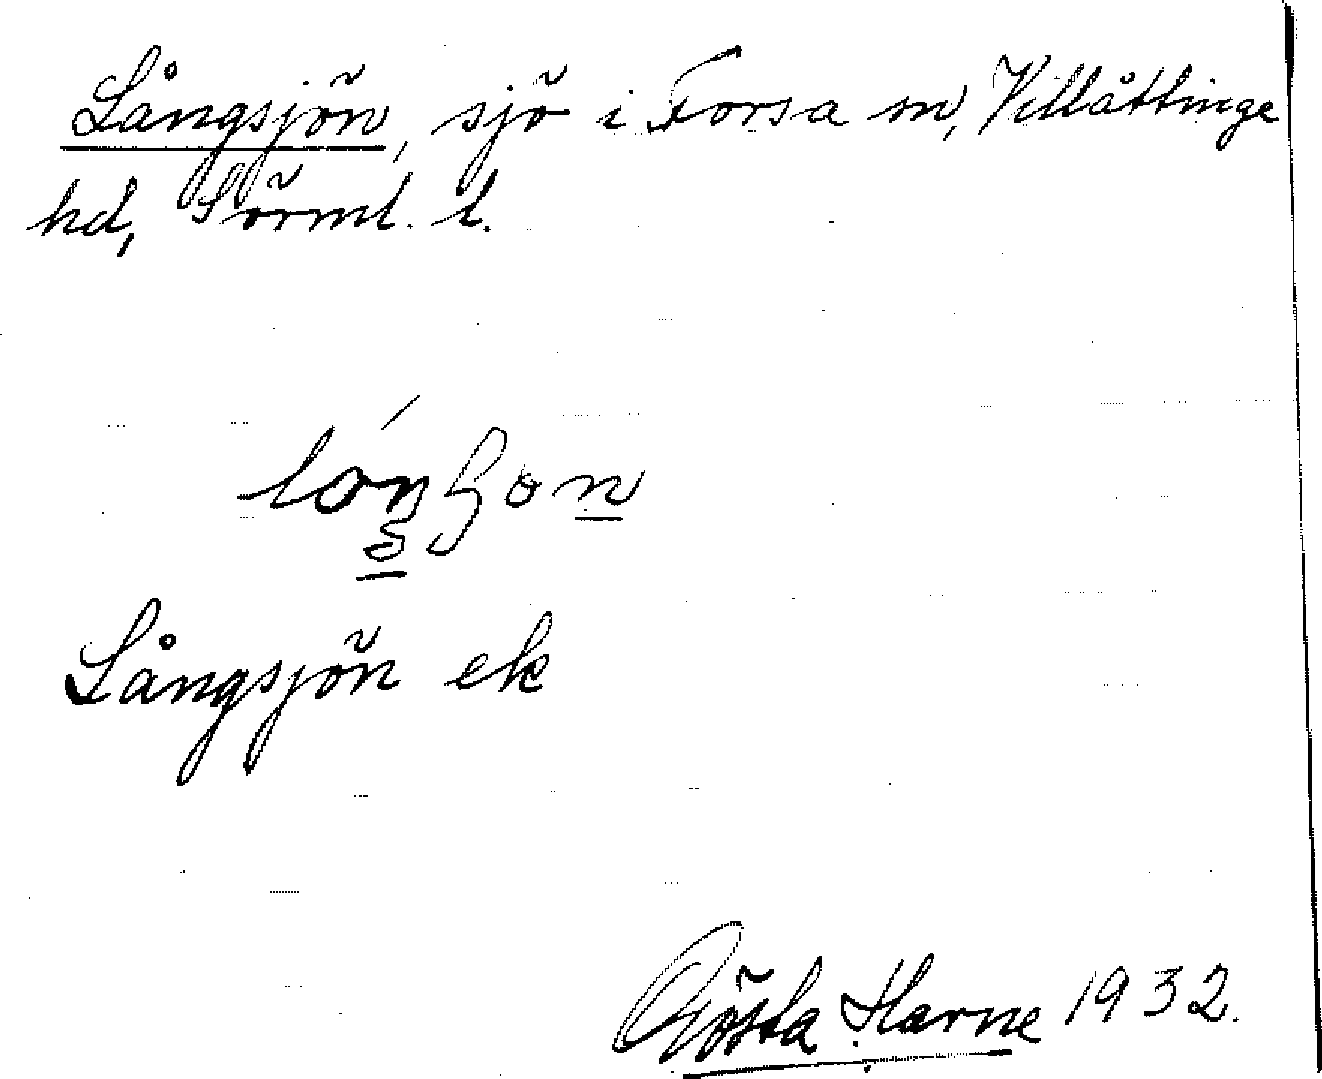 Långsjön, sjö i Forsa sn, Villåttinge
hd, Sörml. l.
Långsjön ek
Gösta Harne 1932.